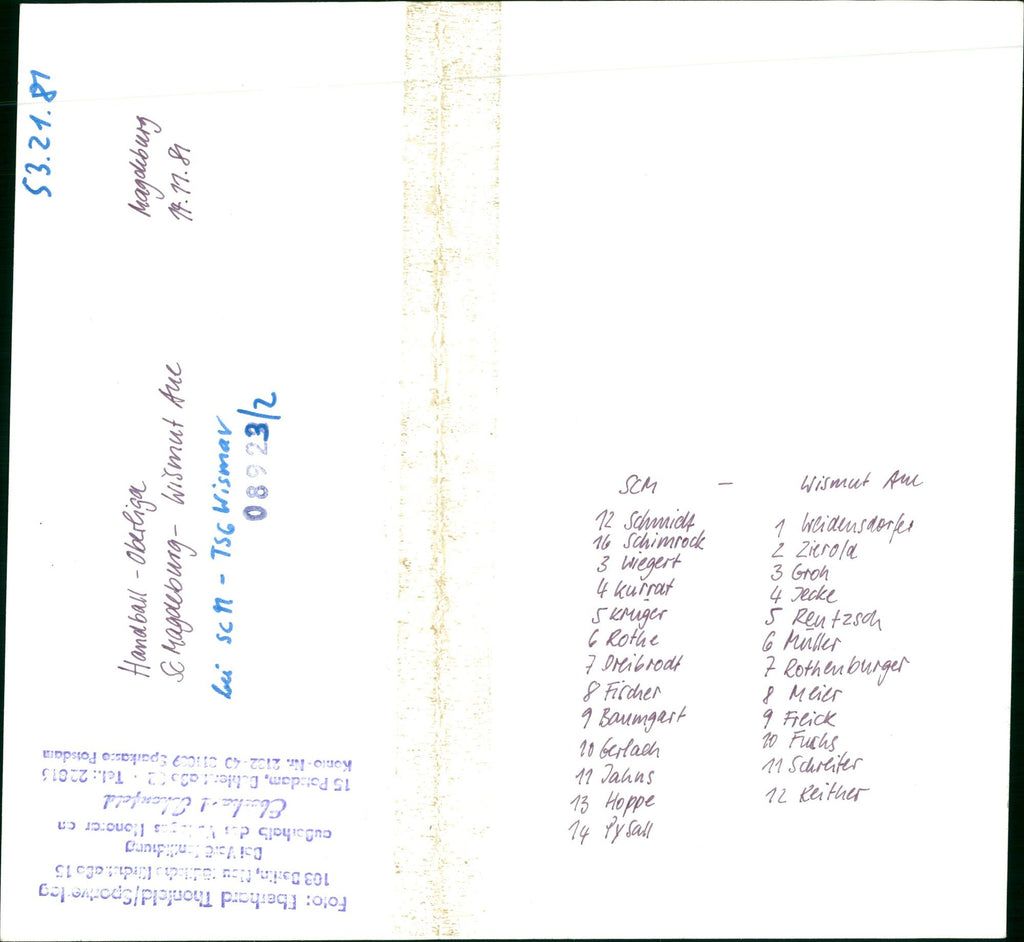 53.21.81
Magdeburg
14.11.81
Handball - Oberliga
SC Magdeburg - Wismut Aue
bei SCM - TSG Wismar
08923/2
Foto: Eberhard Thonfeld/Sportverlag
108 Berlin, Neustädtische Kirchstraße 15
Bei Veröffentlichung
außerhalb des Verlages Honorar an
Eberhard Thonfeld
15 Potsdam, Tel.:
Konto-Nr. Sparkasse Potsdam
SCM - Wismut Aue
12 Schmidt
16 Schimrock
3 Wiegert
4 Kurrat
5 Krüger
6 Rothe
7 Dreibrodt
8 Fischer
9 Baumgart
10 Gerlach
11 Jahns
13 Hoppe
14 Pysall
1 Weidensdorfer
2 Zierold
3 Groh
4 Jecke
5 Rentzsch
6 Müller
7 Rothenburger
8 Meier
9 Freick
10 Fuchs
11 Schreiter
12 Reither